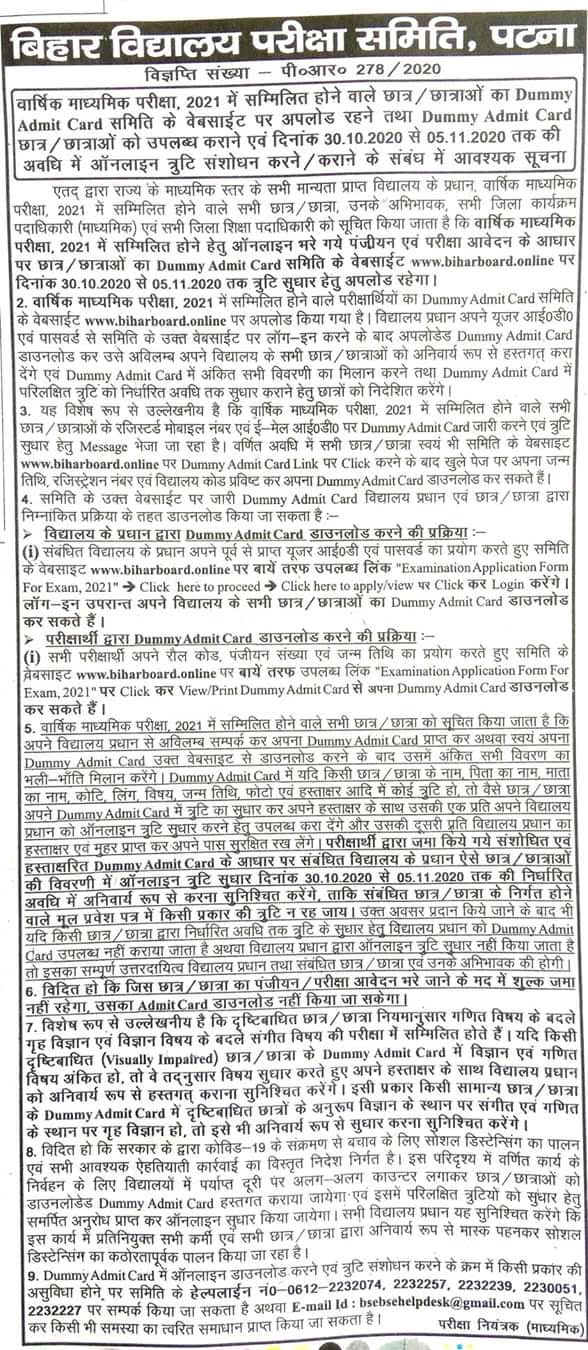 बिहार विद्यालय परीक्षा समिति, पटना
विज्ञप्ति संख्या – पी०आर० 278/2020
वार्षिक माध्यमिक परीक्षा, 2021 में सम्मिलित होने वाले छात्र/छात्राओं का Dummy
Admit Card समिति के वेबसाईट पर अपलोड रहने तथा Dummy Admit Card
छात्र/छात्राओं को उपलब्ध कराने एवं दिनांक 30.10.2020 से 05.11.2020 तक की
अवधि में ऑनलाइन त्रुटि संशोधन करने/कराने के संबंध में आवश्यक सूचना
एतद् द्वारा राज्य के माध्यमिक स्तर के सभी मान्यता प्राप्त विद्यालय के प्रधान, वार्षिक माध्यमिक
परीक्षा, 2021 में सम्मिलित होने वाले सभी छात्र/छात्रा, उनके अभिभावक, सभी जिला कार्यक्रम
पदाधिकारी (माध्यमिक) एवं सभी जिला शिक्षा पदाधिकारी को सूचित किया जाता है कि वार्षिक माध्यमिक
परीक्षा, 2021 में सम्मिलित होने हेतु ऑनलाइन भरे गये पंजीयन एवं परीक्षा आवेदन के आधार
पर छात्र/छात्राओं का Dummy Admit Card समिति के वेबसाईट www.biharboard.online पर
दिनांक 30.10.2020 से 05.11.2020 तक त्रुटि सुधार हेतु अपलोड रहेगा।
2. वार्षिक माध्यमिक परीक्षा, 2021 में सम्मिलित होने वाले परीक्षार्थियों का Dummy Admit Card समिति
के वेबसाईट www.biharboard.online पर अपलोड किया गया है। विद्यालय प्रधान अपने यूजर आई०डी०
एवं पासवर्ड से समिति के उक्त वेबसाईट पर लॉग–इन करने के बाद अपलोडेड Dummy Admit Card
डाउनलोड कर उसे अविलम्ब अपने विद्यालय के सभी छात्र/छात्राओं को अनिवार्य रूप से हस्तगत करा
देंगे एवं Dummy Admit Card में अंकित सभी विवरणी का मिलान करने तथा Dummy Admit Card में
परिलक्षित त्रुटि को निर्धारित अवधि तक सुधार कराने हेतु छात्रों को निदेशित करेंगे।
3. यह विशेष रूप से उल्लेखनीय है कि वार्षिक माध्यमिक परीक्षा, 2021 में सम्मिलित होने वाले सभी
छात्र/छात्राओं के रजिस्टर्ड मोबाइल नंबर एवं ई–मेल आई०डी० पर Dummy Admit Card जारी करने एवं त्रुटि
सुधार हेतु Message भेजा जा रहा है। वर्णित अवधि में सभी छात्र/छात्रा स्वयं भी समिति के वेबसाइट
www.biharboard.online पर Dummy Admit Card Link पर Click करने के बाद खुले पेज पर अपना जन्म
तिथि, रजिस्ट्रेशन नंबर एवं विद्यालय कोड प्रविष्ट कर अपना Dummy Admit Card डाउनलोड कर सकते हैं।
4. समिति के उक्त वेबसाईट पर जारी Dummy Admit Card विद्यालय प्रधान एवं छात्र/छात्रा द्वारा
निम्नांकित प्रक्रिया के तहत डाउनलोड किया जा सकता है :–
➢ विद्यालय के प्रधान द्वारा Dummy Admit Card डाउनलोड करने की प्रक्रिया :–
(i) संबंधित विद्यालय के प्रधान अपने पूर्व से प्राप्त यूजर आई०डी एवं पासवर्ड का प्रयोग करते हुए समिति
के वेबसाइट www.biharboard.online पर बायें तरफ उपलब्ध लिंक "Examination Application Form
For Exam, 2021" → Click here to proceed → Click here to apply/view पर Click कर Login करेंगे।
लॉग–इन उपरान्त अपने विद्यालय के सभी छात्र/छात्राओं का Dummy Admit Card डाउनलोड
कर सकते हैं।
➢ परीक्षार्थी द्वारा Dummy Admit Card डाउनलोड करने की प्रक्रिया :–
(i) सभी परीक्षार्थी अपने रौल कोड, पंजीयन संख्या एवं जन्म तिथि का प्रयोग करते हुए समिति के
वेबसाइट www.biharboard.online पर बायें तरफ उपलब्ध लिंक "Examination Application Form For
Exam, 2021" पर Click कर View/Print Dummy Admit Card से अपना Dummy Admit Card डाउनलोड
कर सकते हैं।
5. वार्षिक माध्यमिक परीक्षा, 2021 में सम्मिलित होने वाले सभी छात्र/छात्रा को सूचित किया जाता है कि
अपने विद्यालय प्रधान से अविलम्ब सम्पर्क कर अपना Dummy Admit Card प्राप्त कर अथवा स्वयं अपना
Dummy Admit Card उक्त वेबसाइट से डाउनलोड करने के बाद उसमें अंकित सभी विवरण का
भली–भाँति मिलान करेंगे। Dummy Admit Card में यदि किसी छात्र/छात्रा के नाम, पिता का नाम, माता
का नाम, कोटि, लिंग, विषय, जन्म तिथि, फोटो एवं हस्ताक्षर आदि में कोई त्रुटि हो, तो वैसे छात्र/छात्रा
अपने Dummy Admit Card में त्रुटि का सुधार कर अपने हस्ताक्षर के साथ उसकी एक प्रति अपने विद्यालय
प्रधान को ऑनलाइन त्रुटि सुधार करने हेतु उपलब्ध करा देंगे और उसकी दूसरी प्रति विद्यालय प्रधान का
हस्ताक्षर एवं मुहर प्राप्त कर अपने पास सुरक्षित रख लेंगे। परीक्षार्थी द्वारा जमा किये गये संशोधित एवं
हस्ताक्षरित Dummy Admit Card के आधार पर संबंधित विद्यालय के प्रधान ऐसे छात्र/छात्राओं
की विवरणी में ऑनलाइन त्रुटि सुधार दिनांक 30.10.2020 से 05.11.2020 तक की निर्धारित
अवधि में अनिवार्य रूप से करना सुनिश्चित करेंगे, ताकि संबंधित छात्र/छात्रा के निर्गत होने
वाले मूल प्रवेश पत्र में किसी प्रकार की त्रुटि न रह जाय। उक्त अवसर प्रदान किये जाने के बाद भी
यदि किसी छात्र/छात्रा द्वारा निर्धारित अवधि तक त्रुटि के सुधार हेतु विद्यालय प्रधान को Dummy Admit
Card उपलब्ध नहीं कराया जाता है अथवा विद्यालय प्रधान द्वारा ऑनलाइन त्रुटि सुधार नहीं किया जाता है
तो इसका सम्पूर्ण उत्तरदायित्व विद्यालय प्रधान तथा संबंधित छात्र/छात्रा एवं उनके अभिभावक की होगी।
6. विदित हो कि जिस छात्र/छात्रा का पंजीयन/परीक्षा आवेदन भरे जाने के मद में शुल्क जमा
नहीं रहेगा, उसका Admit Card डाउनलोड नहीं किया जा सकेगा।
7. विशेष रूप से उल्लेखनीय है कि दृष्टिबाधित छात्र/छात्रा नियमानुसार गणित विषय के बदले
गृह विज्ञान एवं विज्ञान विषय के बदले संगीत विषय की परीक्षा में सम्मिलित होते हैं। यदि किसी
दृष्टिबाधित (Visually Impaired) छात्र/छात्रा के Dummy Admit Card में विज्ञान एवं गणित
विषय अंकित हो, तो वे तद्नुसार विषय सुधार करते हुए अपने हस्ताक्षर के साथ विद्यालय प्रधान
को अनिवार्य रूप से हस्तगत कराना सुनिश्चित करेंगे। इसी प्रकार किसी सामान्य छात्र/छात्रा
के Dummy Admit Card में दृष्टिबाधित छात्रों के अनुरूप विज्ञान के स्थान पर संगीत एवं गणित
के स्थान पर गृह विज्ञान हो, तो इसे भी अनिवार्य रूप से सुधार करना सुनिश्चित करेंगे।
8. विदित हो कि सरकार के द्वारा कोविड–19 के संक्रमण से बचाव के लिए सोशल डिस्टेन्सिंग का पालन
एवं सभी आवश्यक ऐहतियाती कार्रवाई का विस्तृत निदेश निर्गत है। इस परिदृश्य में वर्णित कार्य के
निर्वहन के लिए विद्यालयों में पर्याप्त दूरी पर अलग–अलग काउन्टर लगाकर छात्र/छात्राओं को
डाउनलोडेड Dummy Admit Card हस्तगत कराया जायेगा एवं इसमें परिलक्षित त्रुटियों को सुधार हेतु
समर्पित अनुरोध प्राप्त कर ऑनलाइन सुधार किया जायेगा। सभी विद्यालय प्रधान यह सुनिश्चित करेंगे कि
इस कार्य में प्रतिनियुक्त सभी कर्मी एवं सभी छात्र/छात्रा द्वारा अनिवार्य रूप से मास्क पहनकर सोशल
डिस्टेन्सिंग का कठोरतापूर्वक पालन किया जा रहा है।
9. Dummy Admit Card में ऑनलाइन डाउनलोड करने एवं त्रुटि संशोधन करने के क्रम में किसी प्रकार की
असुविधा होने पर समिति के हेल्पलाईन नं०-0612-2232074, 2232257, 2232239, 2230051,
2232227 पर सम्पर्क किया जा सकता है अथवा E-mail Id : bsebsehelpdesk@gmail.com पर सूचित
कर किसी भी समस्या का त्वरित समाधान प्राप्त किया जा सकता है।
परीक्षा नियंत्रक (माध्यमिक)